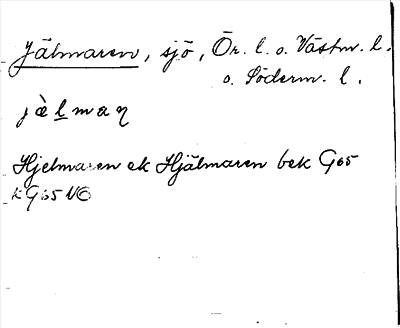 Jälmaren, sjö, Ör. l. o. Västm. l.
o. Söderm. l.
jàlmaɳ
Hjelmaren ek Hjälmaren bek G65
k G65 NO